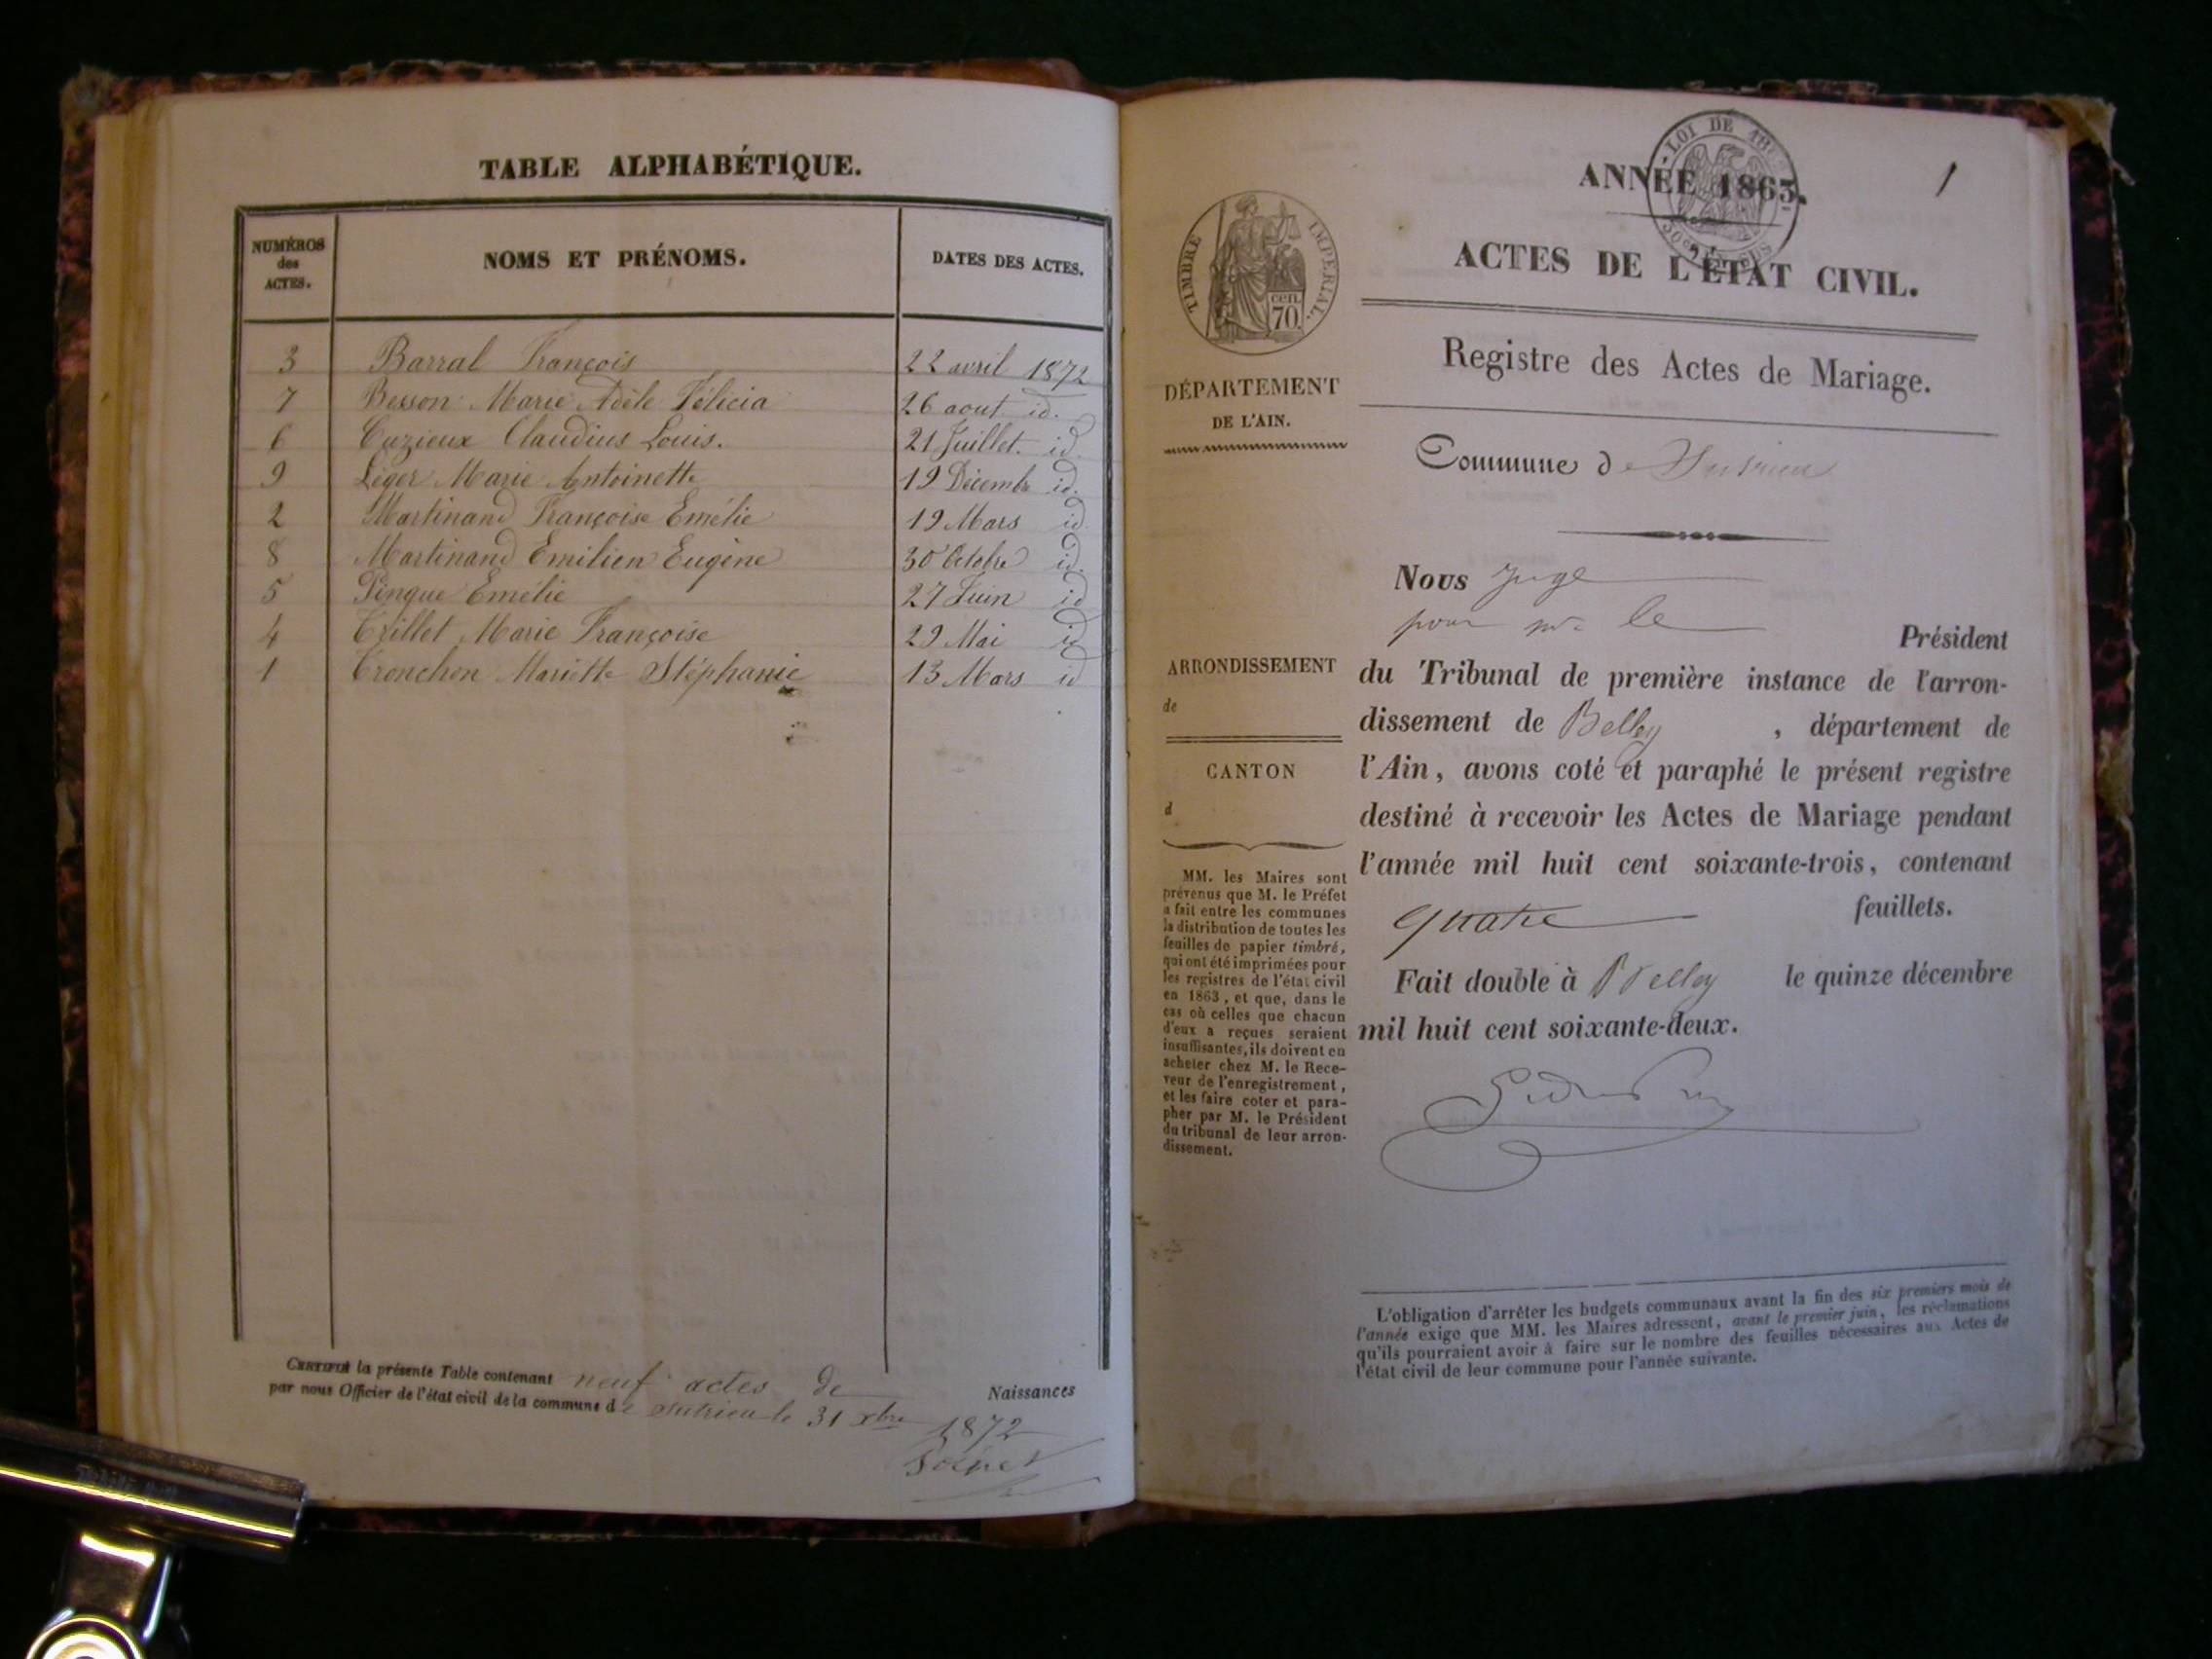 TABLE ALPHABÉTIQUE.
NUMÉROS des ACTES. NOMS ET PRÉNOMS. DATES DES ACTES.
3 Barral François 22 avril 1872
7 Besson Marie Adèle Félicia 26 aout id.
6 Cuzieux Claudius Louis. 21 Juillet. id.
9 Léger Marie Antoinette 19 Décembre id.
2 Martinand Françoise Emélie 19 Mars id
8 Martinand Emilien Eugène 30 Octobre id.
5 Pingue Emélie 27 Juin id
4 Trillet Marie Françoise 29 Mai id
1 Tronchon Mariette Stéphanie 13 Mars id
CERTIFIÉ la présente Table contenant neuf actes de Naissances
par nous Officier de l'état civil de la commune de Sutrieu le 31 xbre 1872
1
LOI DE
ANNÉE 1863.
TIMBRE IMPERIAL.
cen.
70.
ACTES DE L'ÉTAT CIVIL.
Registre des Actes de Mariage.
DÉPARTEMENT
DE L'AIN.
Commune de Sutrieu
Nous juge
pour mr le Président
ARRONDISSEMENT
de
CANTON
d
du Tribunal de première instance de l'arron-
dissement de Belley , département de
l'Ain, avons coté et paraphé le présent registre
destiné à recevoir les Actes de Mariage pendant
l'année mil huit cent soixante-trois, contenant
quatre feuillets.
Fait double à Belley le quinze décembre
mil huit cent soixante-deux.
MM. les Maires sont
prévenus que M. le Préfet
a fait entre les communes
la distribution de toutes les
feuilles de papier timbré,
qui ont été imprimées pour
les registres de l'état civil
en 1863, et que, dans le
cas où celles que chacun
d'eux a reçues seraient
insuffisantes, ils doivent en
acheter chez M. le Rece-
veur de l'enregistrement,
et les faire coter et para-
pher par M. le Président
du tribunal de leur arron-
dissement.
L'obligation d'arrêter les budgets communaux avant la fin des six premiers mois de
l'année exige que MM. les Maires adressent, avant le premier juin, les réclamations
qu'ils pourraient avoir à faire sur le nombre des feuilles nécessaires aux Actes de
l'état civil de leur commune pour l'année suivante.